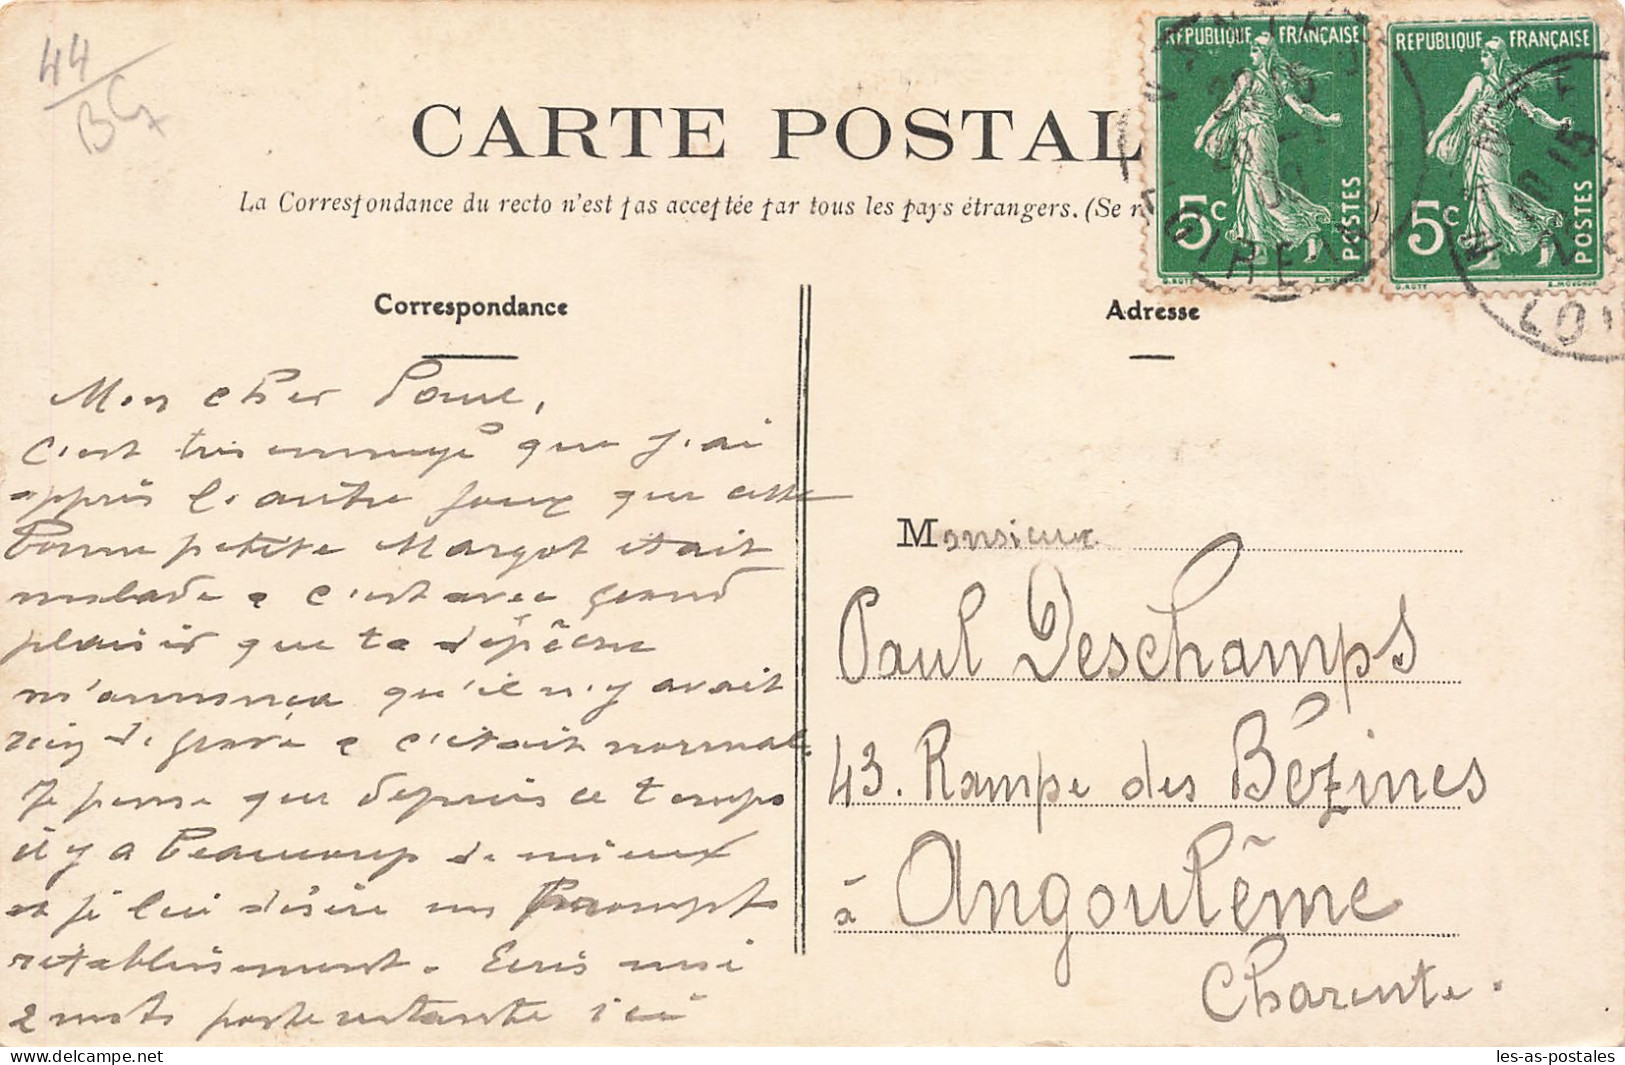 44
BG
CARTE POSTAL
La Correspondance du recto n'est pas acceptée par tous les pays étrangers. (Se r
REPUBLIQUE FRANÇAISE
5c
POSTES
REPUBLIQUE FRANÇAISE
5c
POSTES
LOIRE
LOI
Correspondance
Adresse
Mon cher
C'est très ennuyé que j'ai
appris l'autre jour que cette
bonne petite Margot était
malade & c'est avec grand
plaisir que ta dépêche
m'annonça qu'il n'y avait
rien de grave & c'était normal.
Je pense que depuis ce temps
il y a beaucoup de mieux
et je lui désire un prompt
rétablissement. Ecris moi
2 mots poste restante ici
Monsieur
Paul Deschamps
43. Rampe des Bézines
à Angoulême
Charente.
les-as-postales